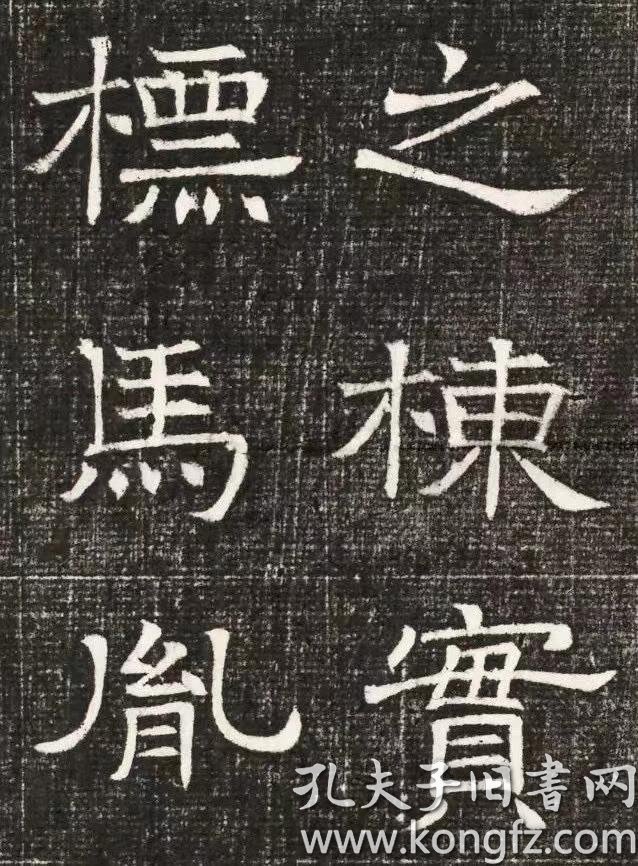 之棟實
標馬胤
孔夫子旧書网
www.kongfz.com